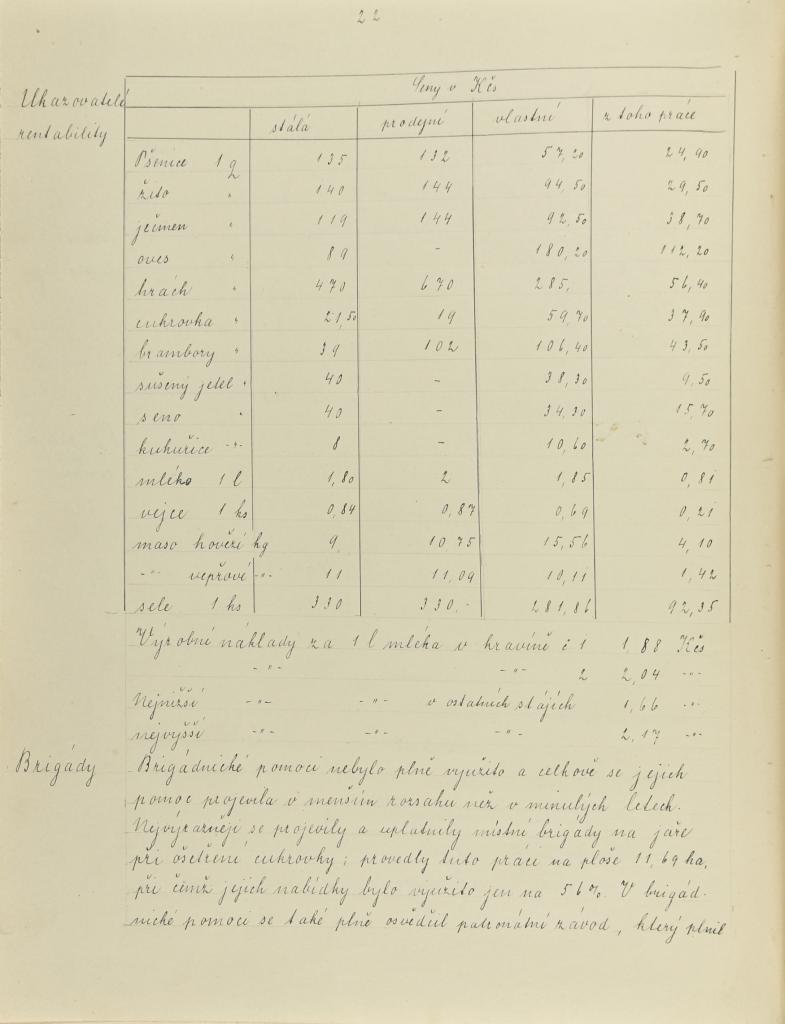 22
Ukazovatelé
rentability
Ceny v Kčs
stálá prodejní vlastní z toho práce
Pšenice 1 q 135 132 57,20 24,90
žito " 140 144 94,50 29,50
ječmen " 119 144 92,50 38,70
oves " 89 - 180,20 112,20
hrách " 470 670 285, 56,40
cukrovka " 21,50 19 59,70 37,90
brambory " 39 102 106,40 43,50
sušený jetel " 40 - 38,30 9,50
seno " 40 - 34,30 15,70
kukuřice -"- 8 - 10,60 2,70
mléko 1 l 1,80 2 1,85 0,81
vejce 1 ks 0,84 0,87 0,69 0,21
maso hovězí kg 9 10 75 15,56 4,10
-"- vepřové -"- 11 11,09 10,11 1,42
sele 1 ks 330 330.- 281,86 92,35
Výrobní náklady za 1 l mléka v kravíně č 1 1,88 Kčs
-"- -"- 2 2,04 -"-
Nejnižší -"- -"- v ostatních stájích 1,66 -"-
nejvyšší -"- -"- -"- 2,17 -"-
Brigády
Brigádnické pomoci nebylo plně využito a celkově se jejich
pomoc projevila v menším rozsahu než v minulých letech.
Nejvýrazněji se projevily a uplatnily místní brigády na jaře
při ošetření cukrovky; provedly tuto práci na ploše 11,69 ha,
při čímž jejich nabídky bylo využito jen na 56%. V brigád-
nické pomoci se také plně osvědčil patronátní závod, který plnil